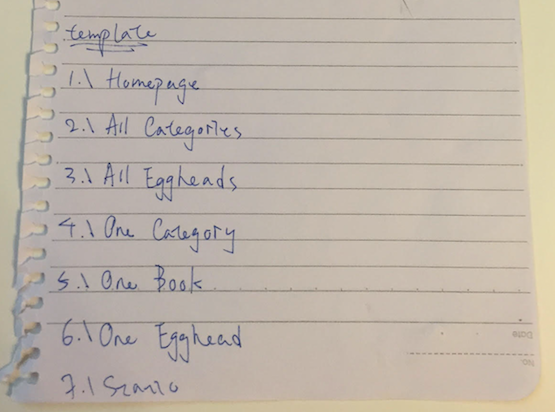 template
1.\ Homepage
2.\ All Categories
3.\ All Eggheads
4.\ One Category
5.\ One Book
6.\ One Egghead
Date
No.
7.\